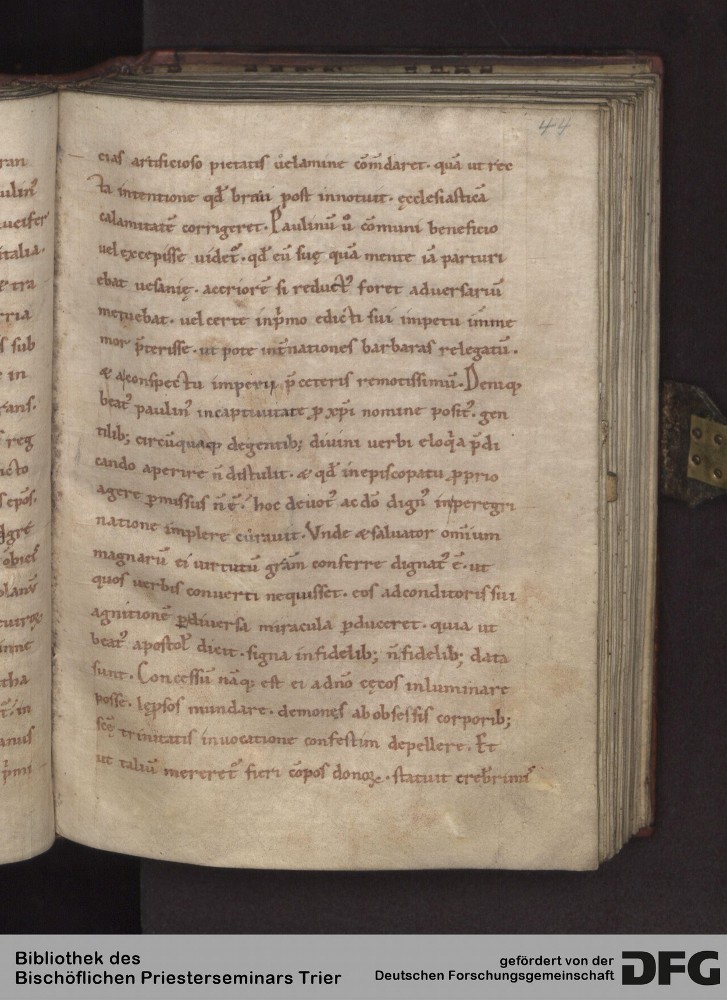 44
cias artificioso pietatis uelamine cōmdaret. quā ut rec
ta intentione qd̄ breui post innotuit. ęcclesiasticā
calamitatē corrigeret. Paulinū ů cōmuni beneficio
uel excepisse uidet᷒. qd̄ eū suę quā mente iā parturi
ebat uesanię. acriorē si reduct᷒ foret aduersariū
metuebat. uel certe inp̄mo edicti sui impetu im̄me
mor p̄terisse. ut pote int̄ nationes barbaras relegatū.
& a conspectu imperii p̄ ceteris remotissimū. Deniq;
beat᷒ paulin᷒ incaptiuitate ꝓ xp̄i nomine posit᷒. gen
tilib; circūquaq; degentib; diuini uerbi eloq̇a p̄di
cando aperire n̄ distulit. & qd̄ in episcopatu ꝓprio
agere ꝑmissus n̄ ē. hoc deuot᷒ ac dō dign᷒ in peregri
natione implere curauit. Vnde & saluator omīum
magnarū ei uirtutū grām conferre dignat᷒ ē. ut
quos uerbis conuerti nequisset. eos adconditoris sui
agnitionē ꝑ diuersa miracula ꝑduceret. quia ut
beat᷒ apostol᷒ dicit. signa infidelib; n̄ fidelib; data
sunt. Concessū nāq; est ei a dn̄o cęcos inluminare
posse. lęprosos mundare. demones ab obsessis corporib;
scę̄ trinitatis inuocatione confestim depellere. Et
ut taliū mereret᷒ fieri cōpos donoꝝ. statuit crebrimis
ran
ulin᷒
italia.
& tra
rria
s sub
e in
rans.
reg
icto
s ep̄os.
Bibliothek des
Bischöflichen Priesterseminars Trier
gefördert von der
Deutschen Forschungsgemeinschaft
DFG